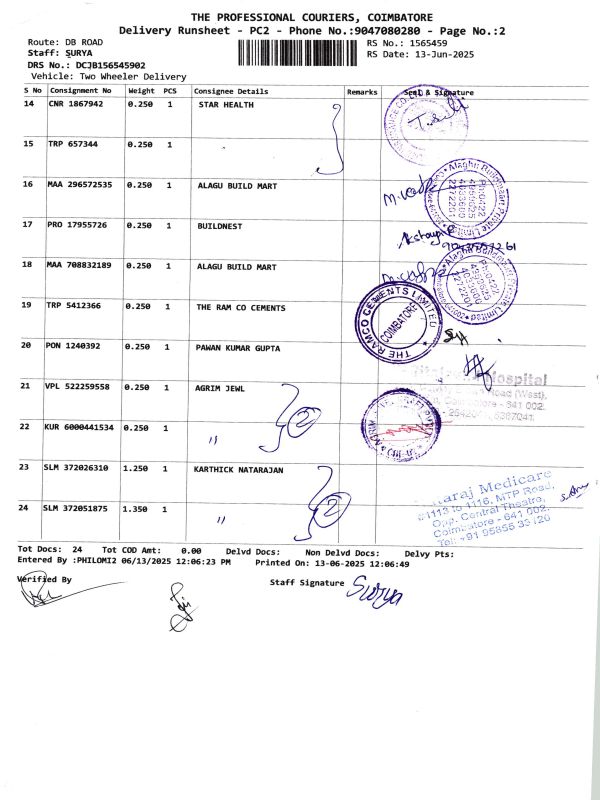 THE PROFESSIONAL COURIERS, COIMBATORE
Delivery Runsheet - PC2 - Phone No.:9047080280 - Page No.:2
Route: DB ROAD
RS No.: 1565459
Staff: SURYA
RS Date: 13-Jun-2025
DRS No.: DCJB156545902
Vehicle: Two Wheeler Delivery
S No Consignment No Weight PCS Consignee Details Remarks Seal & Signature
14 CNR 1867942 0.250 1 STAR HEALTH
15 TRP 657344 0.250 1
16 MAA 296572535 0.250 1 ALAGU BUILD MART
17 PRO 17955726 0.250 1 BUILDNEST
18 MAA 708832189 0.250 1 ALAGU BUILD MART
19 TRP 5412366 0.250 1 THE RAM CO CEMENTS
THE RAMCO CEMENTS LIMITED
COIMBATORE
20 PON 1240392 0.250 1 PAWAN KUMAR GUPTA
Hospital
Road (West),
Coimbatore - 641 002.
21 VPL 522259558 0.250 1 AGRIM JEWL
2
22 KUR 6000441534 0.250 1 "
23 SLM 372026310 1.250 1 KARTHICK NATARAJAN
2
24 SLM 372051875 1.350 1 "
Medicare
#1113 to 1116, MTP Road,
Opp. Central Theatre,
Coimbatore - 641 002.
Tel: +91 95855 33126
Tot Docs: 24 Tot COD Amt: 0.00 Delvd Docs: Non Delvd Docs: Delvy Pts:
Entered By :PHILOMI2 06/13/2025 12:06:23 PM Printed On: 13-06-2025 12:06:49
Verified By
Staff Signature Surya